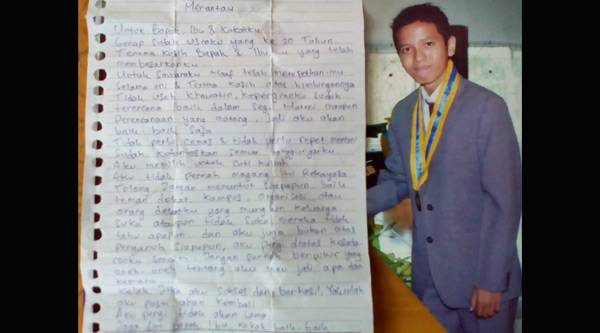 Merantau
Untuk Bapak, Ibu & Kakakku
Genap sudah usiaku yang ke 20 Tahun
Terima kasih Bapak & Ibu ku yang telah
membesarkanku
Untuk Saudaraku Maaf telah merepotkan mu
selama ini & Terima kasih atas bimbingannya
Tidak usah khawatir, kepergianku sudah
terencana baik dalam segi Materi maupun
Perencanaan yang matang, jadi aku akan
baik baik saja
Tidak perlu cemas & tidak perlu repot mencari
sudah semua tanggunganku
Aku memilih untuk cuti kuliah
Aku tidak pernah magang itu
Tolong Jangan menuntut siapapun, baik
teman dekat, kampus, organisasi atau
orang dekatku yang mungkin keluarga
suka ataupun tidak suka mereka tidak
tahu apapun dan aku juga bukan atas
pengaruh siapapun, aku pergi diatas
sendiri Jangan pernah berpikir yang
aneh aneh tentang aku mau jadi apa dan
kemana
Kelak Jika aku sukses dan berhasil, Yakinlah
aku pasti akan kembali
Aku pergi tidak akan lama
Jaga diri Bapak, Ibu, kakak baik-baik